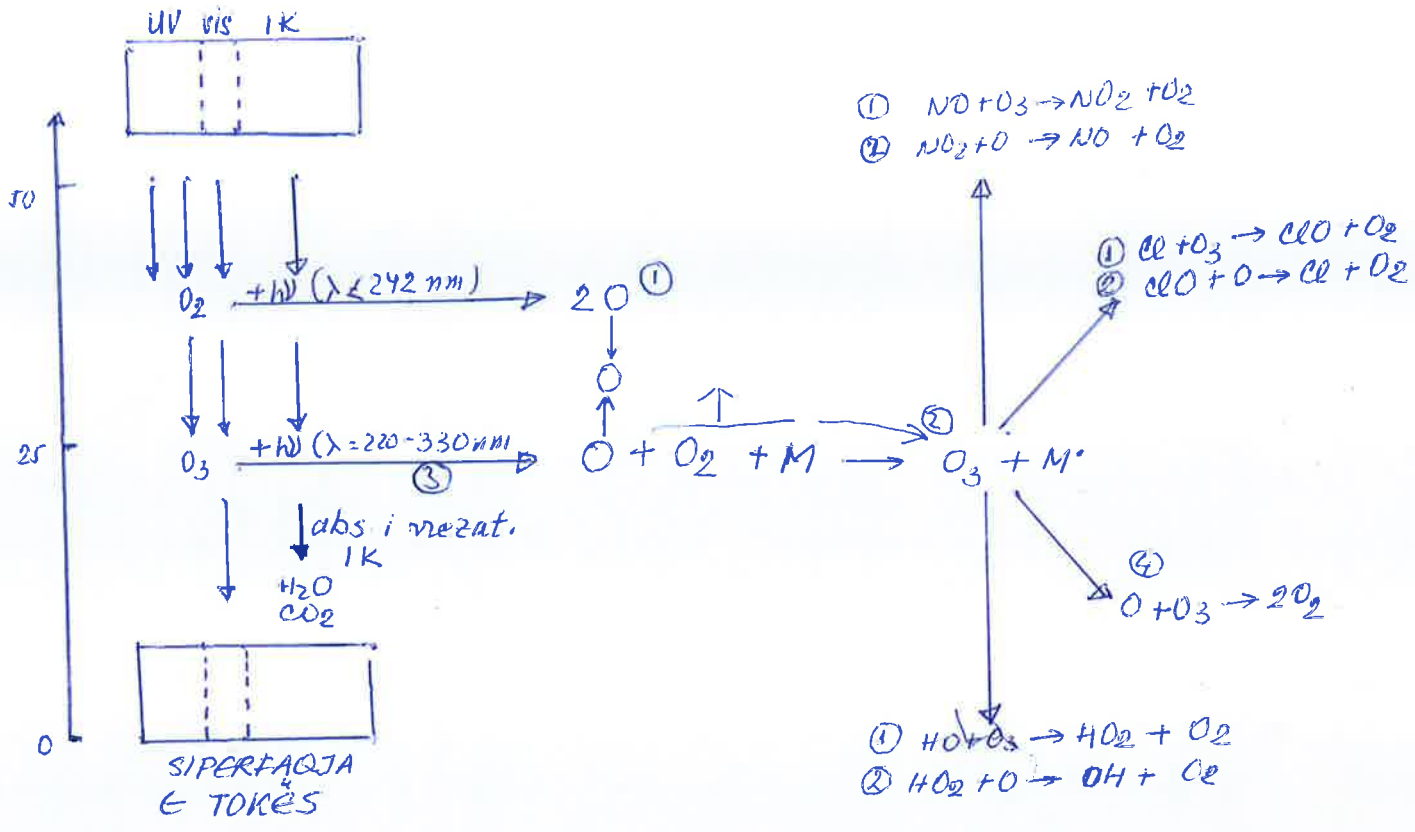 UV vis IK
50
25
0
O₂ +hν (λ ≤ 242 nm)
2O ①
O
O₃ +hν (λ = 220-330 nm
③
O + O₂ + M → ② O₃ + M*
abs i rrezat.
IK
H₂O
CO₂
SIPERFAQJA
E TOKËS
① NO + O₃ → NO₂ + O₂
② NO₂ + O → NO + O₂
① Cl + O₃ → ClO + O₂
② ClO + O → Cl + O₂
④
O + O₃ → 2O₂
① HO + O₃ → HO₂ + O₂
② HO₂ + O → OH + O₂